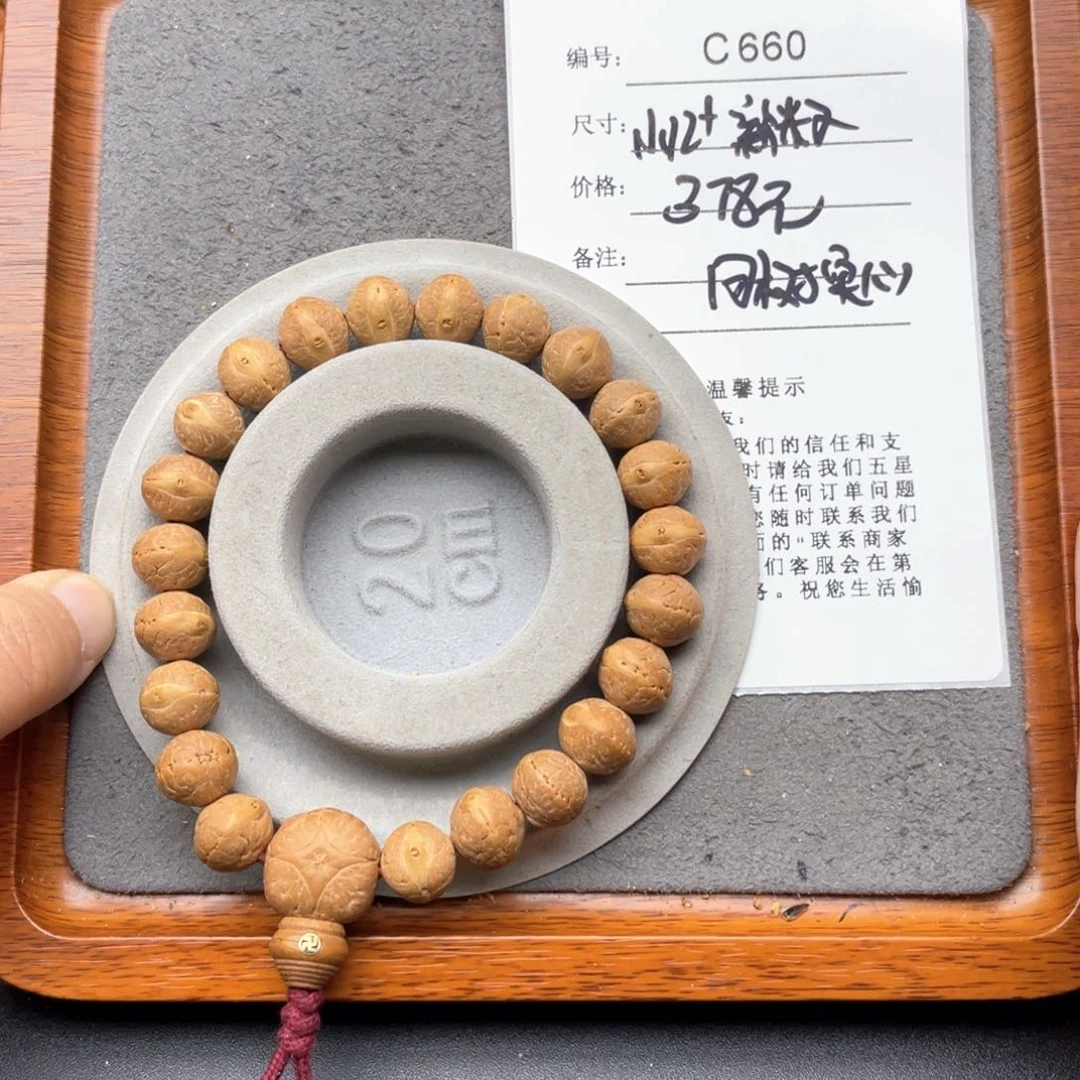 编号: C660
尺寸:
价格: 378元
备注:
温馨提示
友:
我们的信任和支
时请给我们五星
有任何订单问题
您随时联系我们
面的“联系商家
们客服会在第
务。祝您生活愉
20
cm
卐